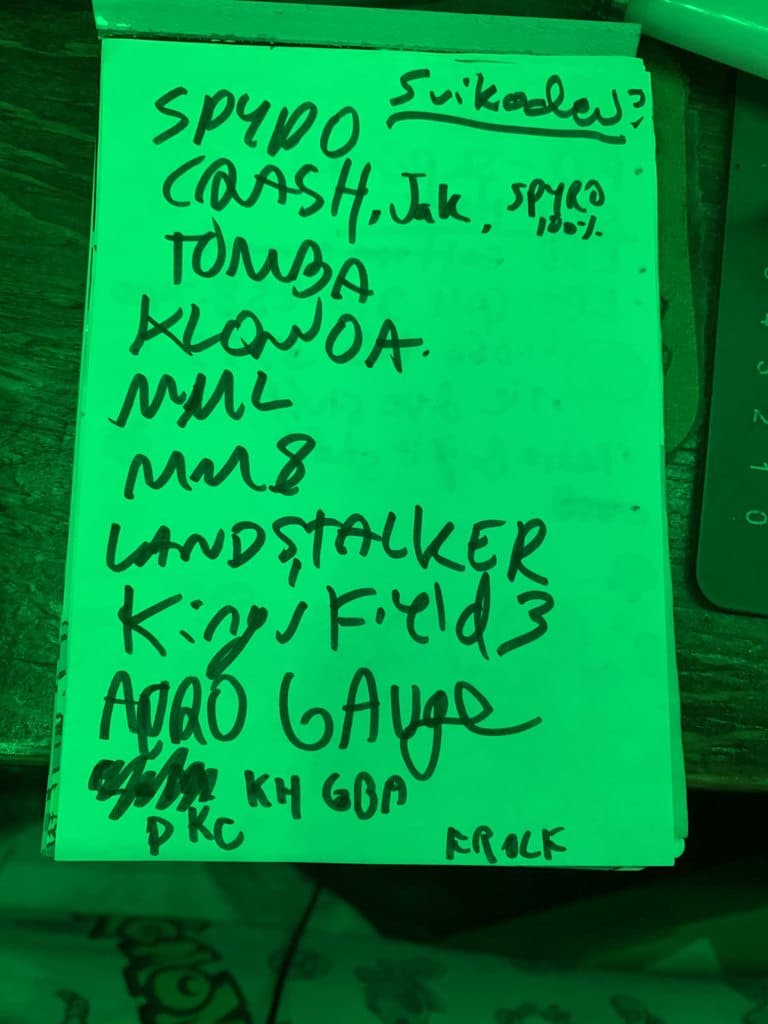 Suikoden?
SPYRO
CRASH, Jak, SPYRO 100%
TOMBA
KLONOA.
MML
MM8
LANDSTALKER
Kings Field 3
AERO GAUGE
KH GBA
DKC
0
1
2
3
4